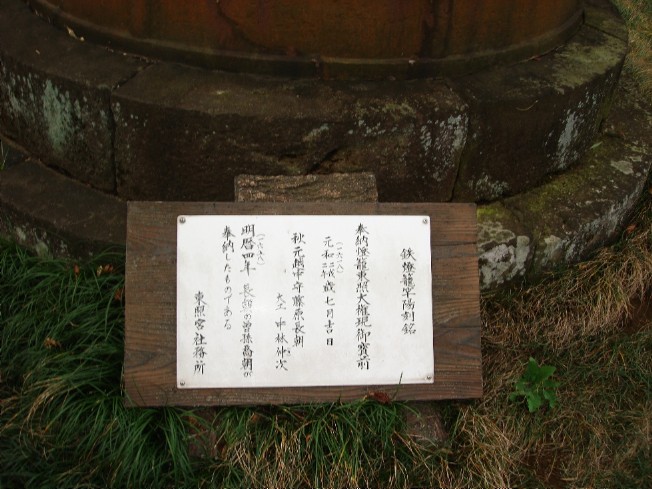 鉄燈籠竿陽刻銘
奉納燈籠東照大権現御寳前
(一六一八)
元和二二戊歳七月吉日
秋元越中守藤原長朝
大工 中林仲次
(一六五八)
明暦四年 長朝の曽孫喬朝が
奉納したものである
東照宮社務所